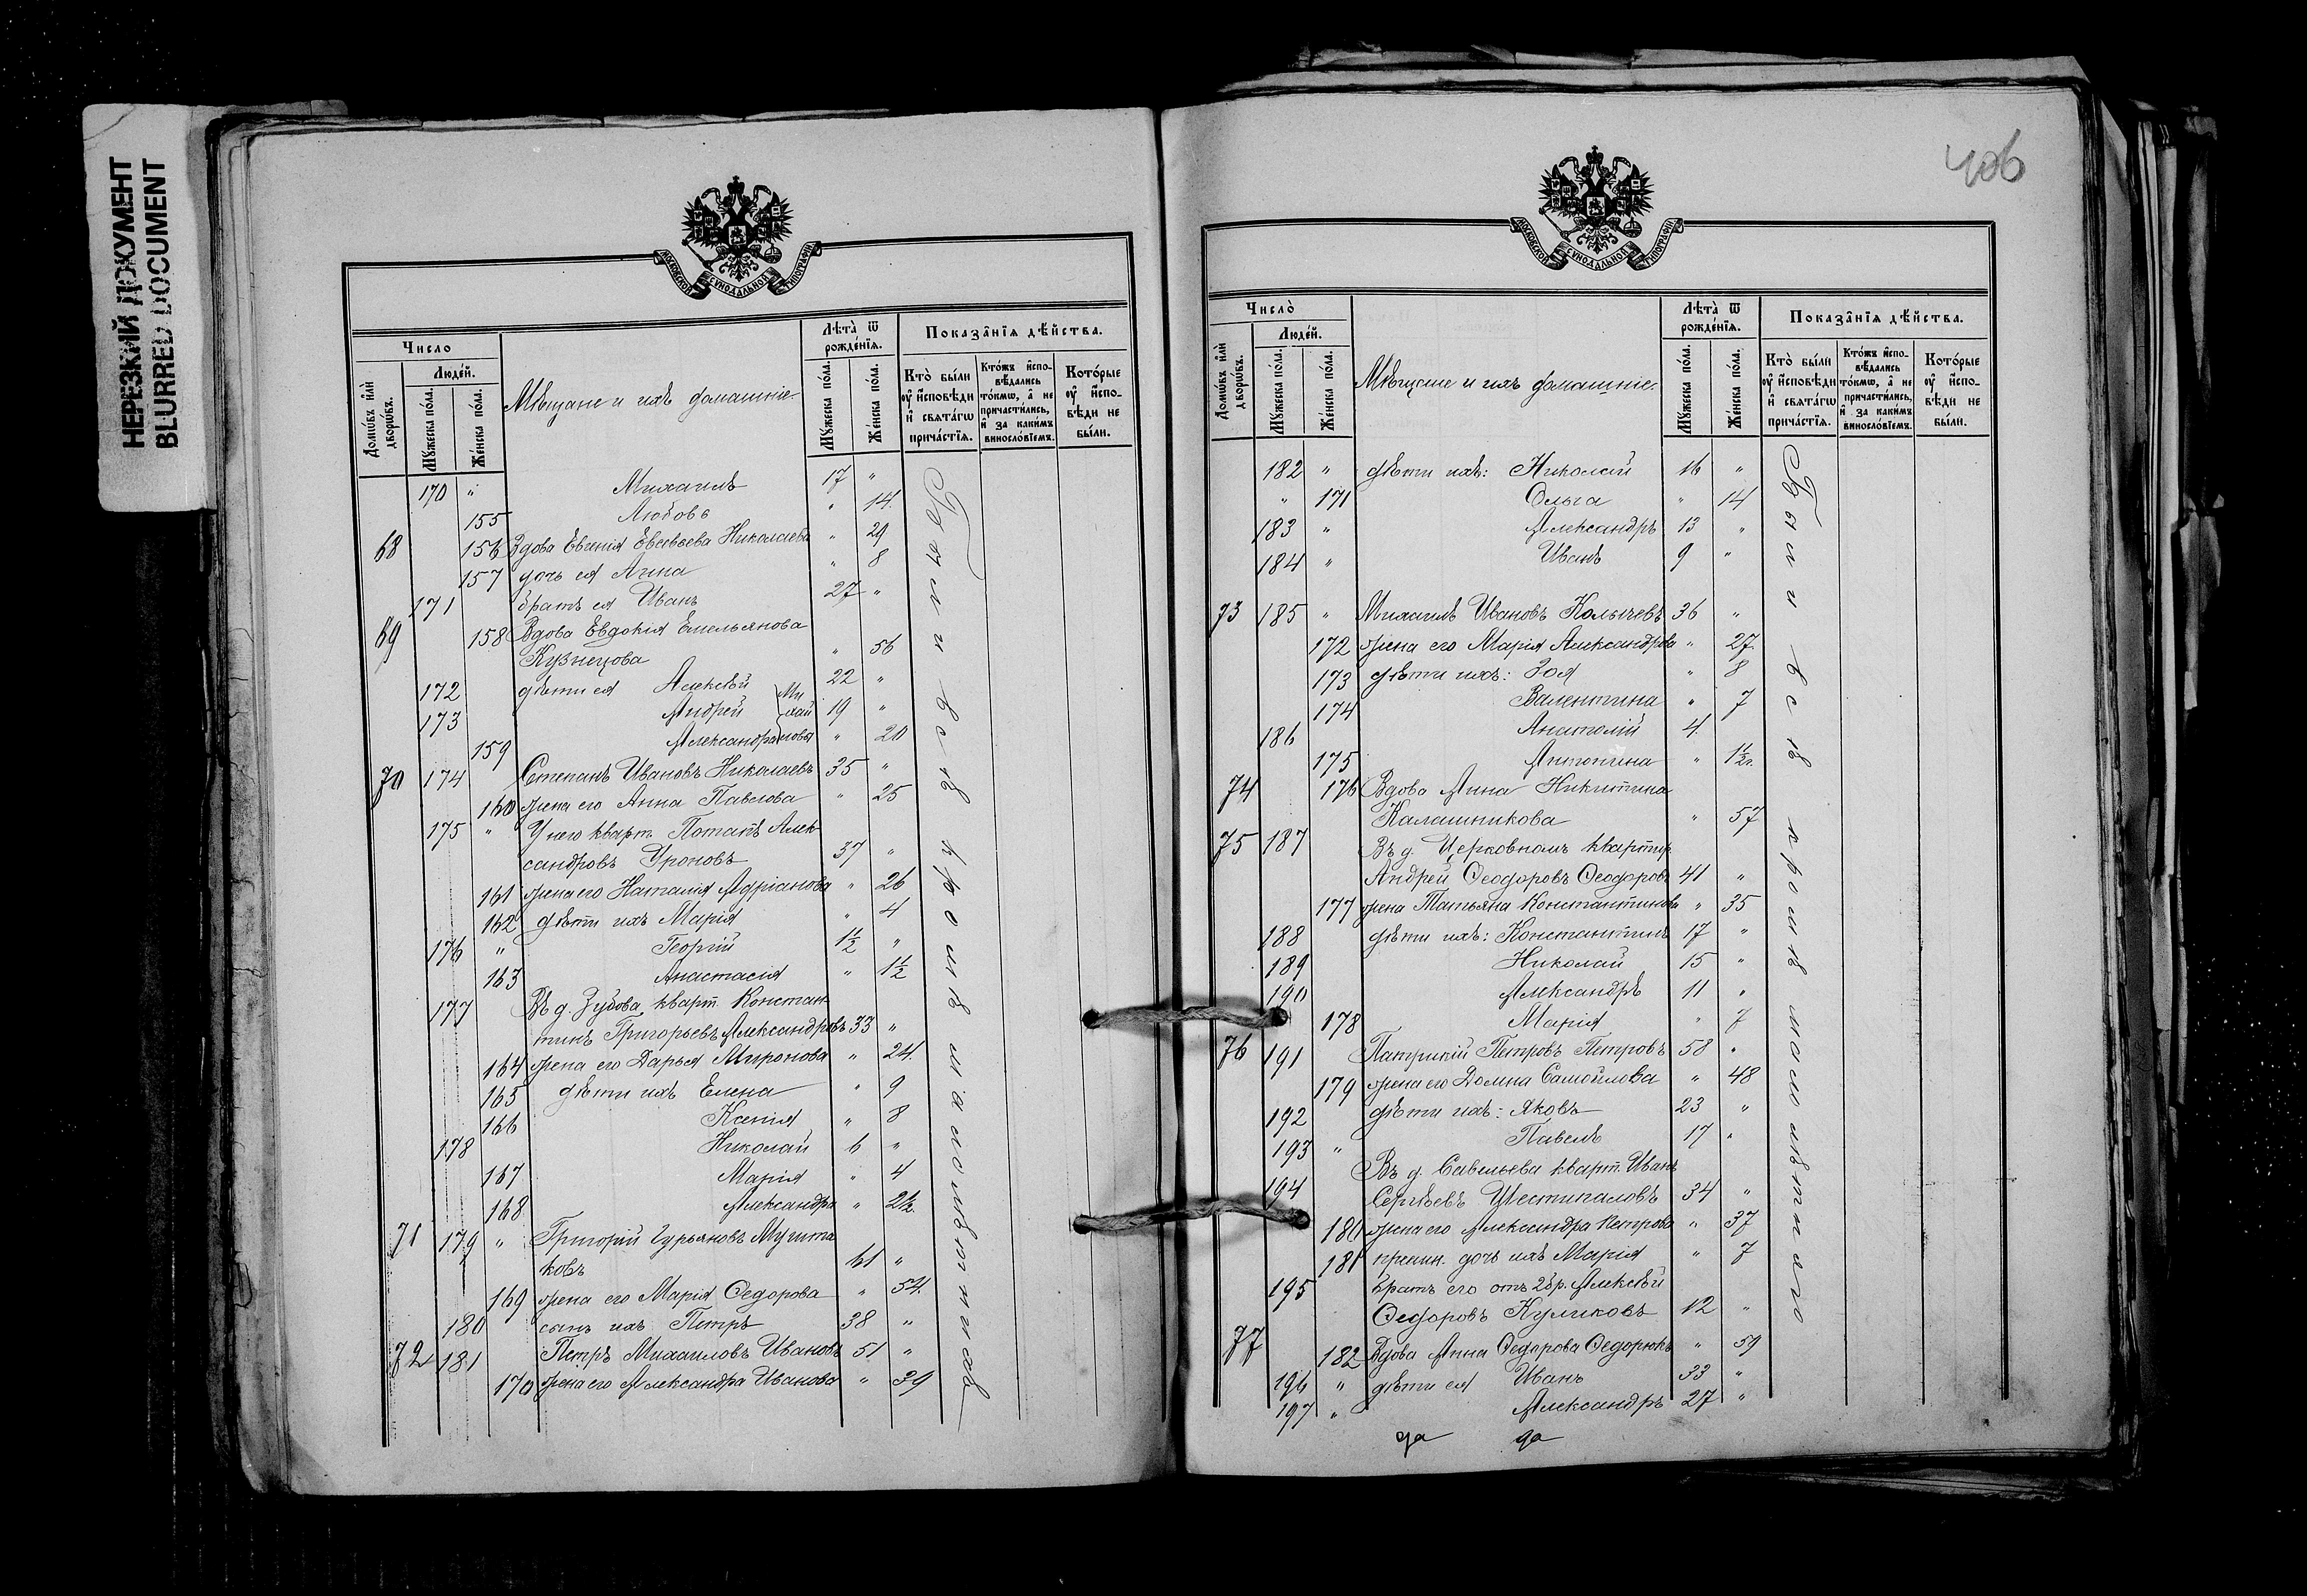 НЕРЕЗКИЙ ДОКУМЕНТ
BLURRED DOCUMENT
МОСКОВСКОЙ СѴНОДАЛЬНОЙ ТИПОГРАФІИ
Число
Людей.
Домѡвъ или дворѡвъ.
Мужеска пола.
Женска пола.
Мѣщане и ихъ домашніе
Лѣта ѿ рожденїѧ.
Мужеска пола.
Женска пола.
Показанїѧ дѣйства.
Кто были оу исповѣди и свѧтагѡ причастїѧ.
Ктожъ исповѣдались токмѡ, а не причастились, и за какимъ винословїемъ.
Которые оу исповѣди не были.
170 " Михаилъ 17 "
155 Любовь " 14
68 156 Вдова Евгенія Евсевьева Николаева " 29
157 дочь ея Анна " 8
171 братъ ея Иванъ 27 "
69 158 Вдова Евдокія Емельянова
Кузнецова " 56
172 дѣти ея Алексѣй 22 "
173 Андрей 19 "
159 Александра " 20
Михайловы
70 174 Степанъ Ивановъ Николаевъ 35 "
160 жена его Анна Павлова " 25
175 " У него кварт. Потапъ Алек-
сандровъ Уроновъ 37 "
161 жена его Наталія Адріанова " 26
162 дѣти ихъ Марія " 4
176 " Георгій 1½ "
163 Анастасія " 1½
177 Въ д. Зубова кварт. Констан-
тинъ Григорьевъ Александровъ 33 "
164 жена его Дарья Миронова " 24
165 дѣти ихъ Елена " 9
166 Ксенія " 8
178 Николай 6 "
167 Марія " 4
168 Александра " 2½
71 179 " Григорій Гурьяновъ
ковъ 61 "
169 жена его Марія Ѳедорова " 54
180 сынъ ихъ Петръ 38 "
72 181 Петръ Михаиловъ Ивановъ 51 "
170 жена его Александра Иванова " 39
Были всѣ кромѣ малолѣтнихъ
406
МОСКОВСКОЙ СѴНОДАЛЬНОЙ ТИПОГРАФІИ
Число
Людей.
Домѡвъ или дворѡвъ.
Мужеска пола.
Женска пола.
Мѣщане и ихъ домашніе.
Лѣта ѿ рожденїѧ.
Мужеска пола.
Женска пола.
Показанїѧ дѣйства.
Кто были оу исповѣди и свѧтагѡ причастїѧ.
Ктожъ исповѣдались токмѡ, а не причастились, и за какимъ винословїемъ.
Которые оу исповѣди не были.
182 " дѣти ихъ: Николай 16 "
" 171 Ольга " 14
183 " Александръ 13 "
184 " Иванъ 9 "
73 185 " Михаилъ Ивановъ Колычевъ 36 "
172 жена его Марія Александрова " 27
173 дѣти ихъ: Зоя " 8
174 Валентина " 7
186 Анатолій 4
175 Антонина " 1½
74 176 Вдова Анна Никитина
Калашникова " 57
75 187 Въ д. Церковномъ квартир.
Андрей Ѳеодоровъ Ѳеодоровъ 41 "
177 жена Татьяна Константинова " 35
188 дѣти ихъ: Константинъ 17 "
189 Николай 15 "
190 Александръ 11 "
178 Марія " 7
76 191 Патрикій Петровъ Петровъ 58 "
179 жена его Домна Самойлова " 48
192 дѣти ихъ: Яковъ 23 "
193 " Павелъ 17 "
Въ д. Савельева кварт. Иванъ
194 Сергѣевъ Шестипаловъ 34 "
180 жена его Александра Петрова " 37
181 дочь ихъ Марія " 7
195 братъ его отъ 2 бр. Алексѣй
Ѳедоровъ Куликовъ 12 "
77 182 Вдова Анна Ѳедорова Ѳедорюкъ " 59
196 " дѣти ея Иванъ 33 "
197 " Александръ 27 "
да да
Были всѣ кромѣ малолѣтнихъ